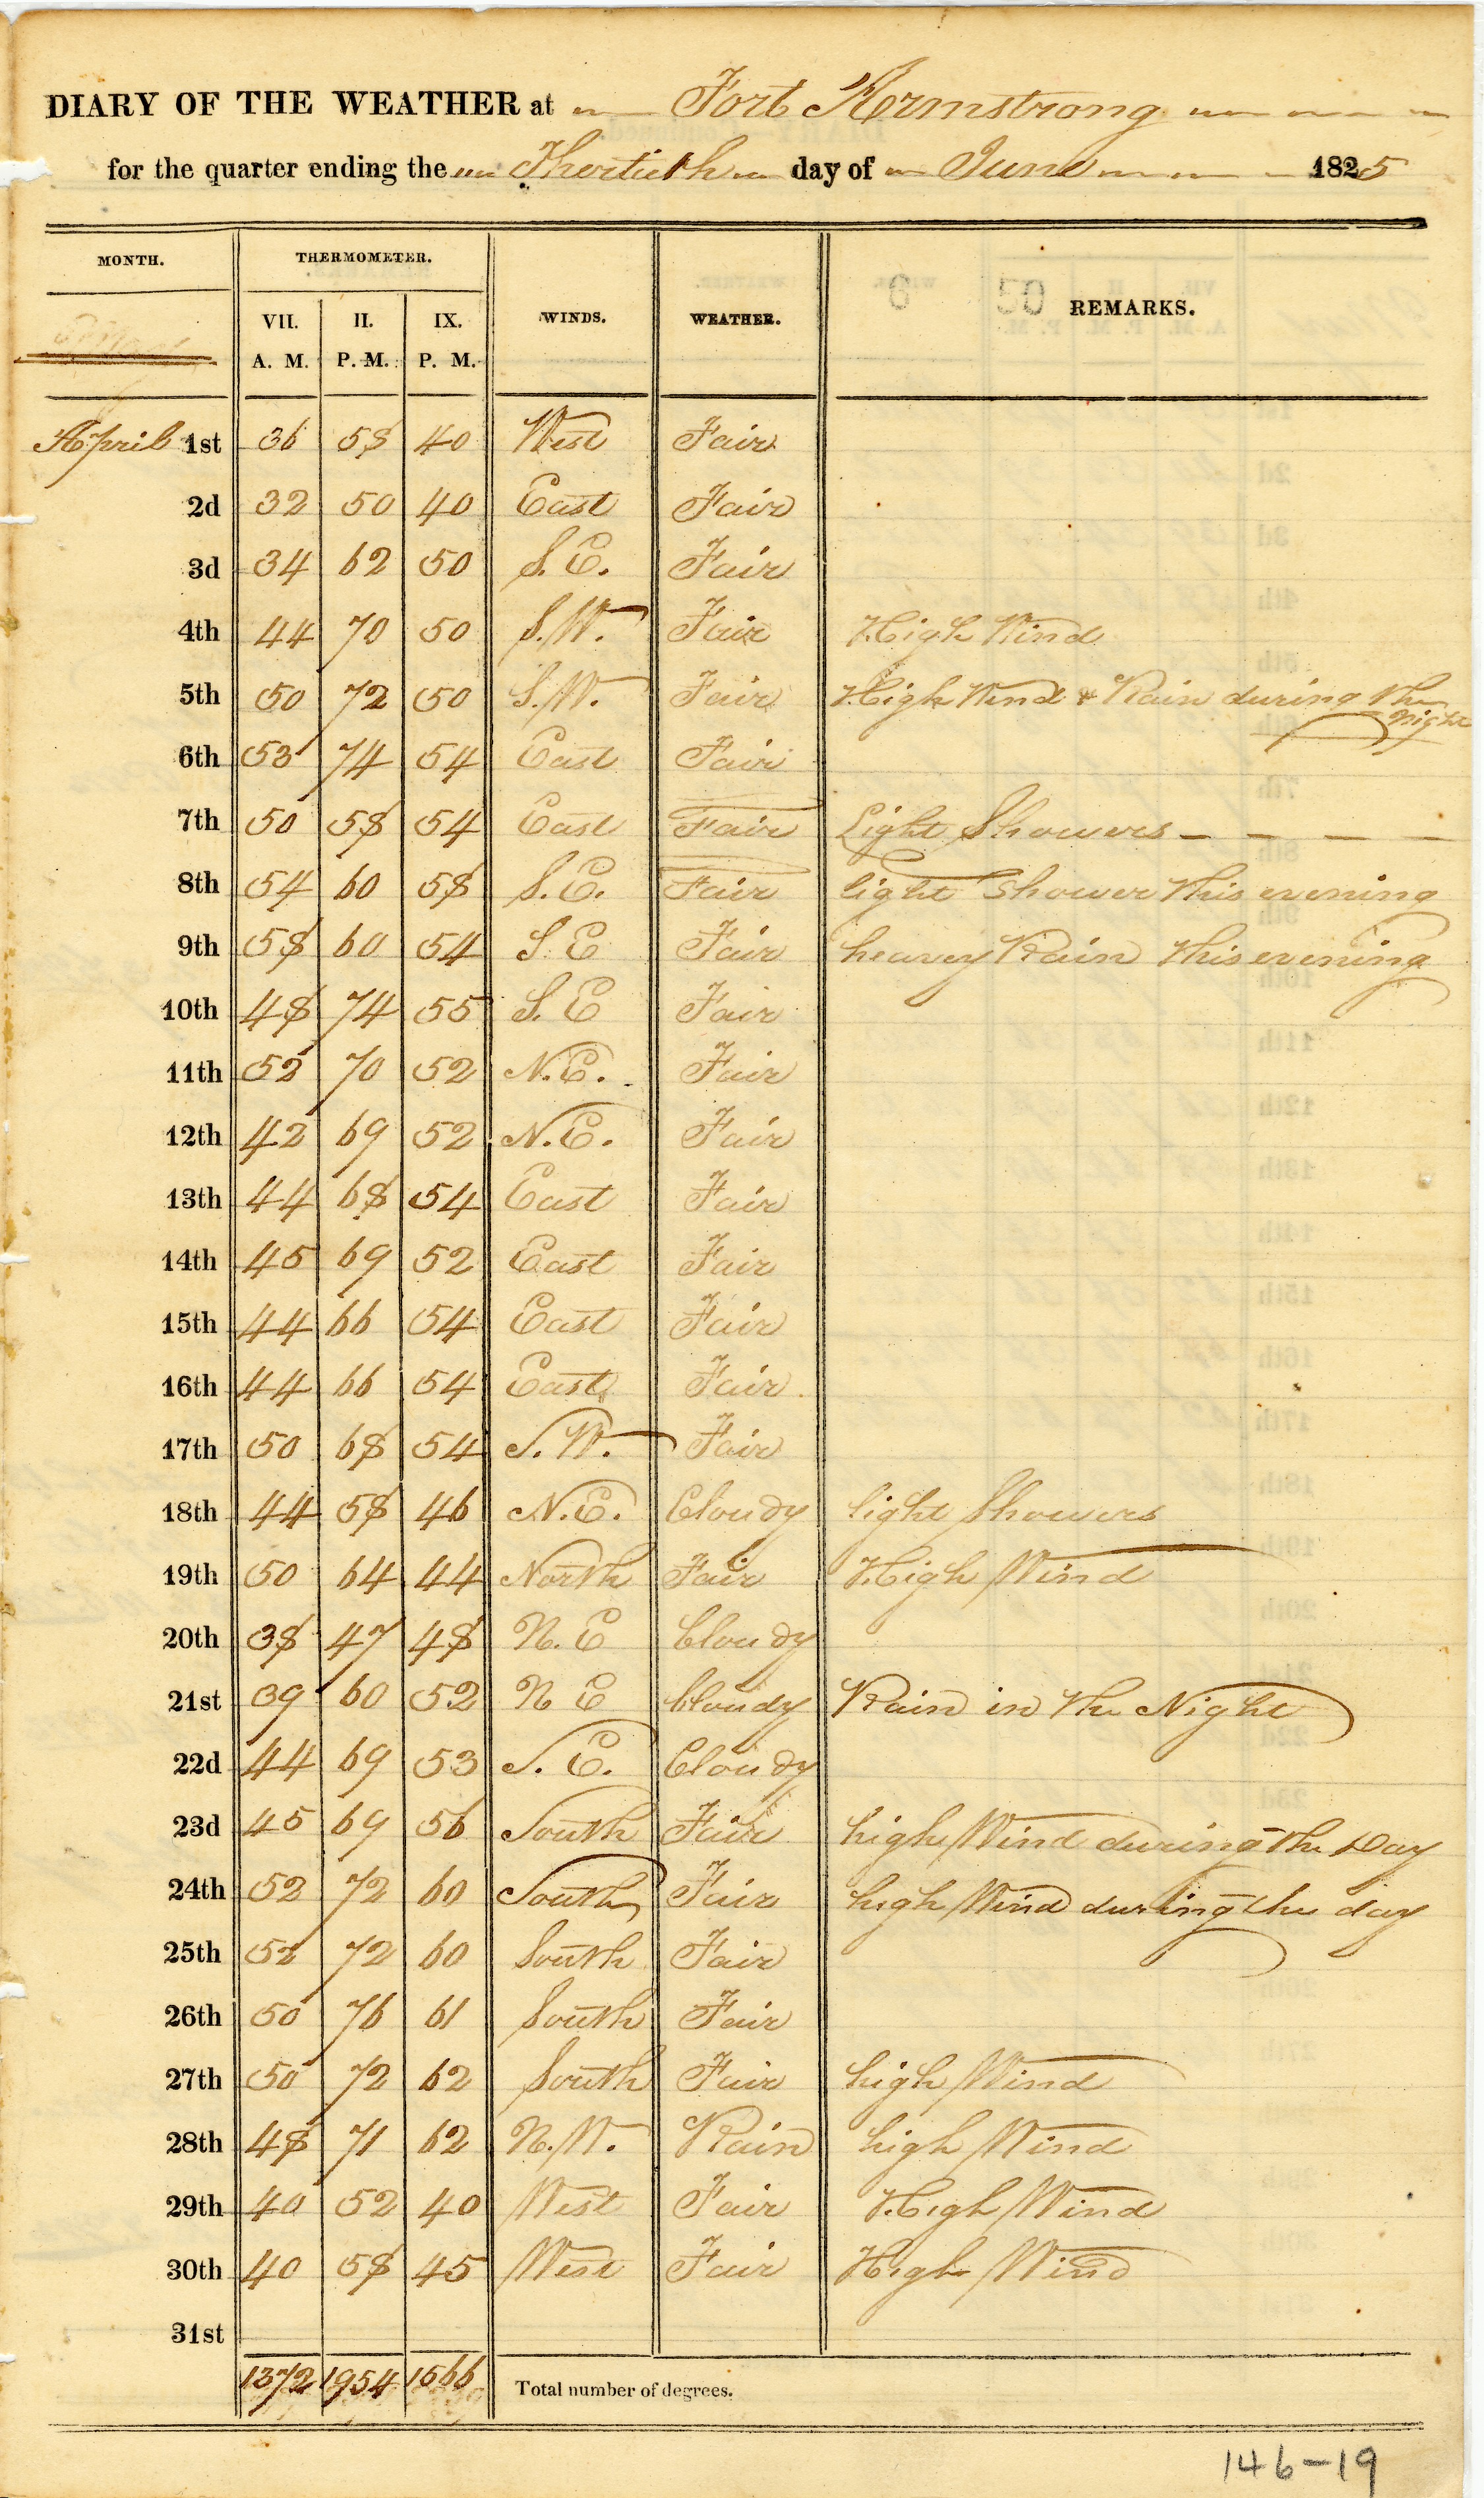 DIARY OF THE WEATHER at Fort Armstrong
for the quarter ending the Thertieth day of June 1825
MONTH. THERMOMETER. WINDS. WEATHER. 6 50 REMARKS.
VII. II. IX.
A. M. P. M. P. M.
April 1st 36 58 40 West Fair
2d 32 50 40 East Fair
3d 34 62 50 S. E. Fair
4th 44 70 50 S. W. Fair High Wind
5th 50 72 50 S. W. Fair High Wind & Rain during the
night
6th 53 74 54 East Fair
7th 50 58 54 East Fair Light Showers
8th 54 60 58 S. E. Fair light Shower this evening
9th 58 60 54 S E Fair heavey Rain this evening
10th 48 74 55 S. E Fair
11th 52 70 52 N. E. Fair
12th 42 69 52 N. E. Fair
13th 44 68 54 East Fair
14th 45 69 52 East Fair
15th 44 66 54 East Fair
16th 44 66 54 East Fair
17th 50 68 54 S. W. Fair
18th 44 58 46 N. E. Cloudy light Showers
19th 50 64 44 North Fair High Wind
20th 38 47 48 N. E Cloudy
21st 39 60 52 N E Cloudy Rain in the Night
22d 44 69 53 S. E. Cloudy
23d 45 69 56 South Fair high Wind during the Day
24th 52 72 60 South Fair high Wind during the day
25th 52 72 60 South Fair
26th 50 76 61 South Fair
27th 50 72 62 South Fair high Wind
28th 48 71 62 N. W. Rain high Wind
29th 40 52 40 West Fair High Wind
30th 40 58 45 West Fair High Wind
31st
1372 1954 1566 Total number of degrees.
146-19